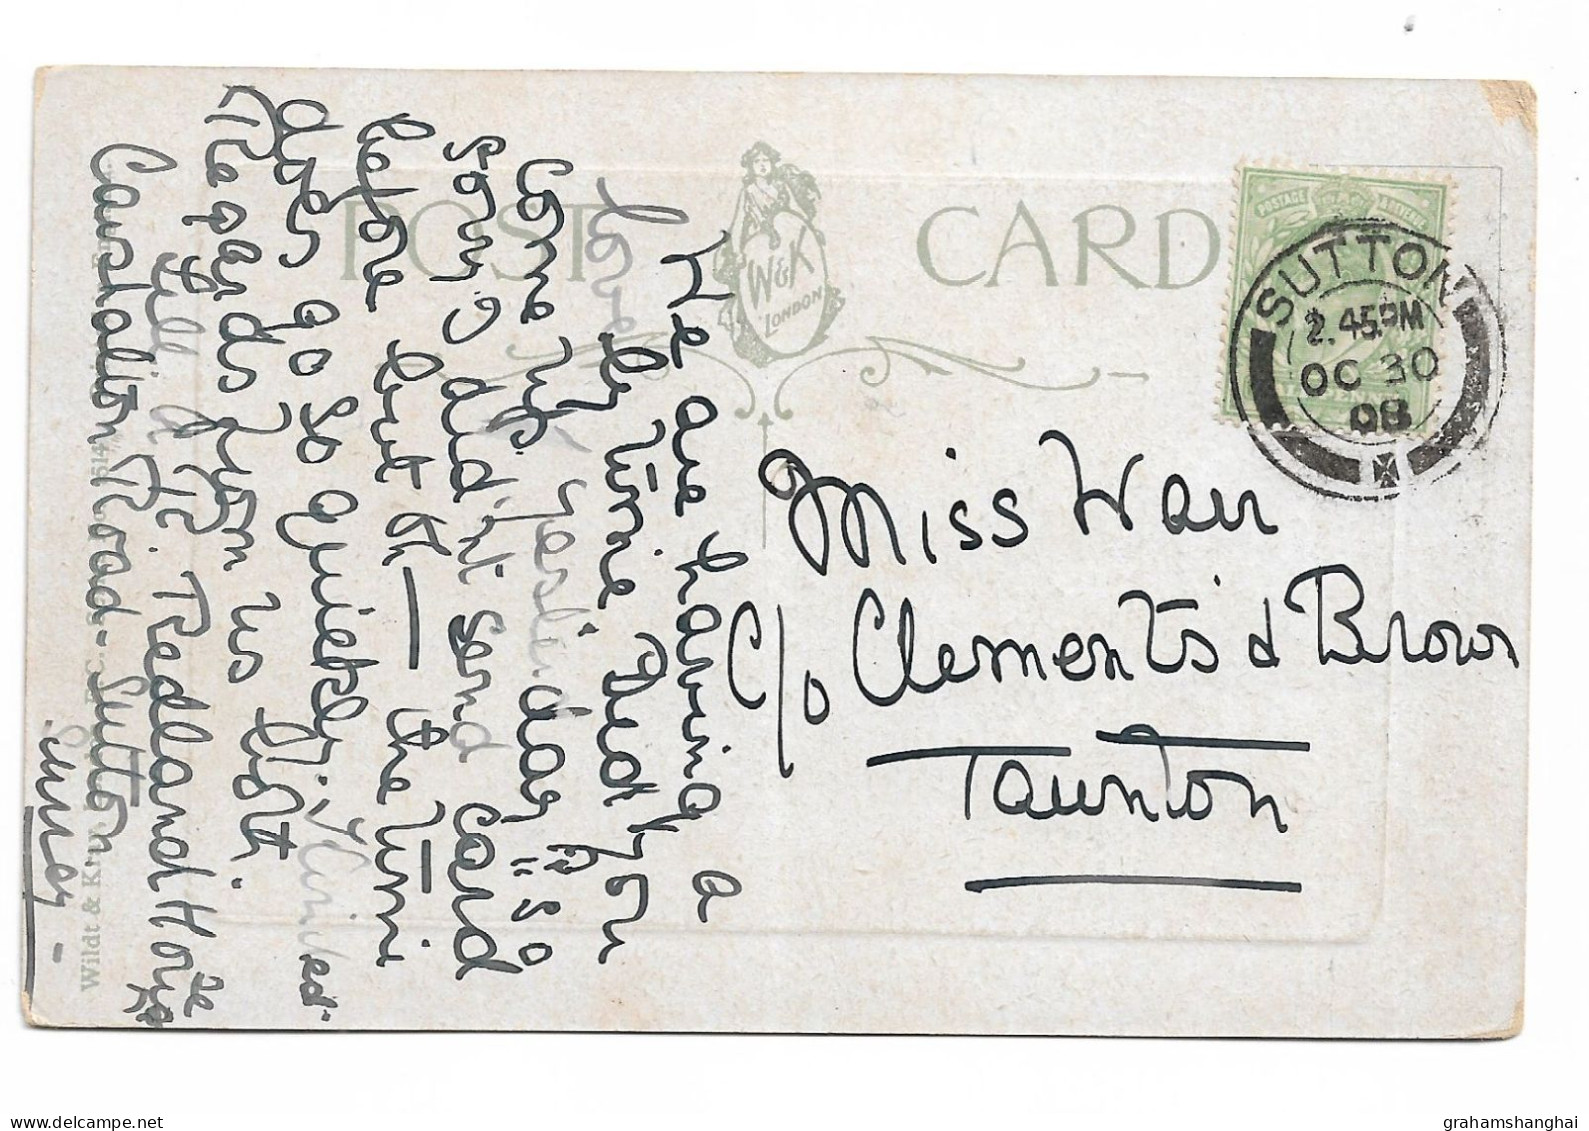 POST CARD
W&K
LONDON
POSTAGE REVENUE
SUTTON
2.45 PM
OC 30
08
Miss Warr
c/o Clements & Brown
Taunton
We are having a
lovely time Gud you
come up yesterday is so
sorry I did'nt send card
before but th— the time
does go so quickly. Kindest
Regards from us both.
Lill d Jc. Redland House
Carshalton Road - Sutton
Surrey -
Wildt & Kray, London, E.C.
grahamshanghai